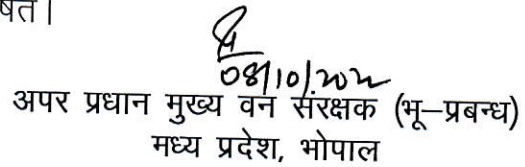 षित।
08/10/2022
अपर प्रधान मुख्य वन संरक्षक (भू–प्रबन्ध)
मध्य प्रदेश, भोपाल